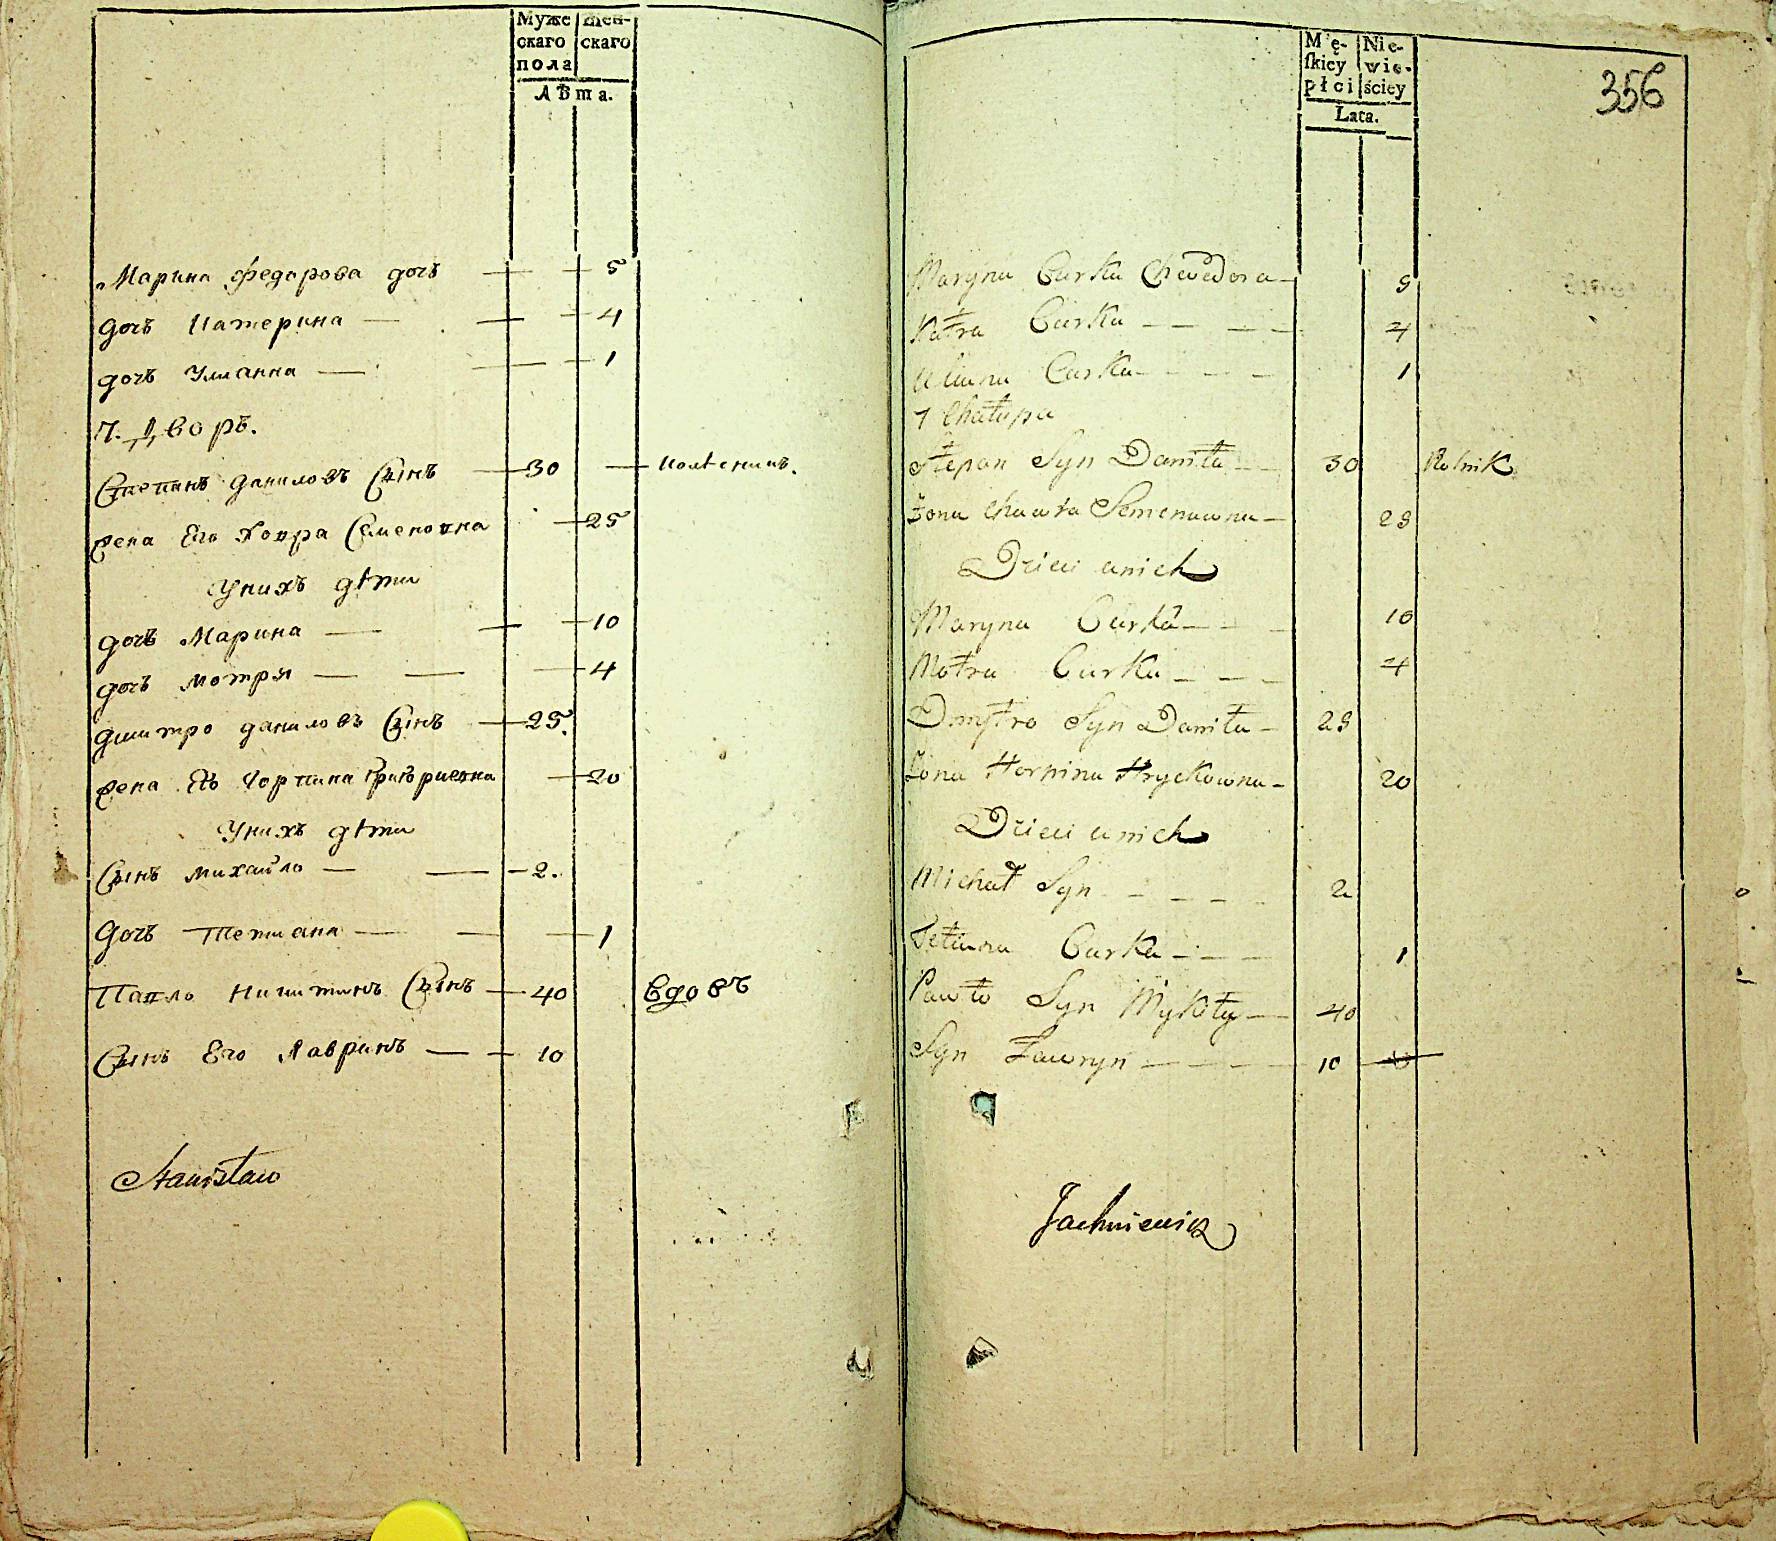 Муже
скаго
пола
Жен-
скаго
Лѣта.
Марина Федорова дочъ — — 5
дочъ Катерина — — — 4
дочъ Улианна — — — 1
7. Дворъ.
Степанъ Даниловъ Сынъ — 30 —
жена Его Ховра Семеновна — 25
У нихъ дѣти
дочъ Марина — — — 10
дочъ Мотря — — — 4
Дмитро Даниловъ Сынъ — 25.
жена Его Горпина Григориевна — 20
У нихъ дѣти
Сынъ Михайло — — — 2.
Дочъ Тетиана — — — 1
Павло Никитинъ Сынъ — 40 вдовъ
Сынъ Его Лавринъ — — 10
Stanisław
Mę-
skiey
płci
Nie-
wie-
ściey
Lata.
356
Maryna Curka Chwedora — 5
Katra Curka — — — — 4
Uliana Curka — — — — 1
7 Chałupa
Stepan Syn Daniła — — 30 Rolnik
Żona Chawra Semenowna — 25
Dzieci u nich
Maryna Curka — — — 10
Motra Curka — — — 4
Dmytro Syn Daniła — 25
Żona Horpina Hryckowna — 20
Dzieci u nich
Michał Syn — — — — 2
Tetiana Curka — — — 1
Pawło Syn Mykity — 40
Syn Ławryn — — — — 10
Jachniewicz